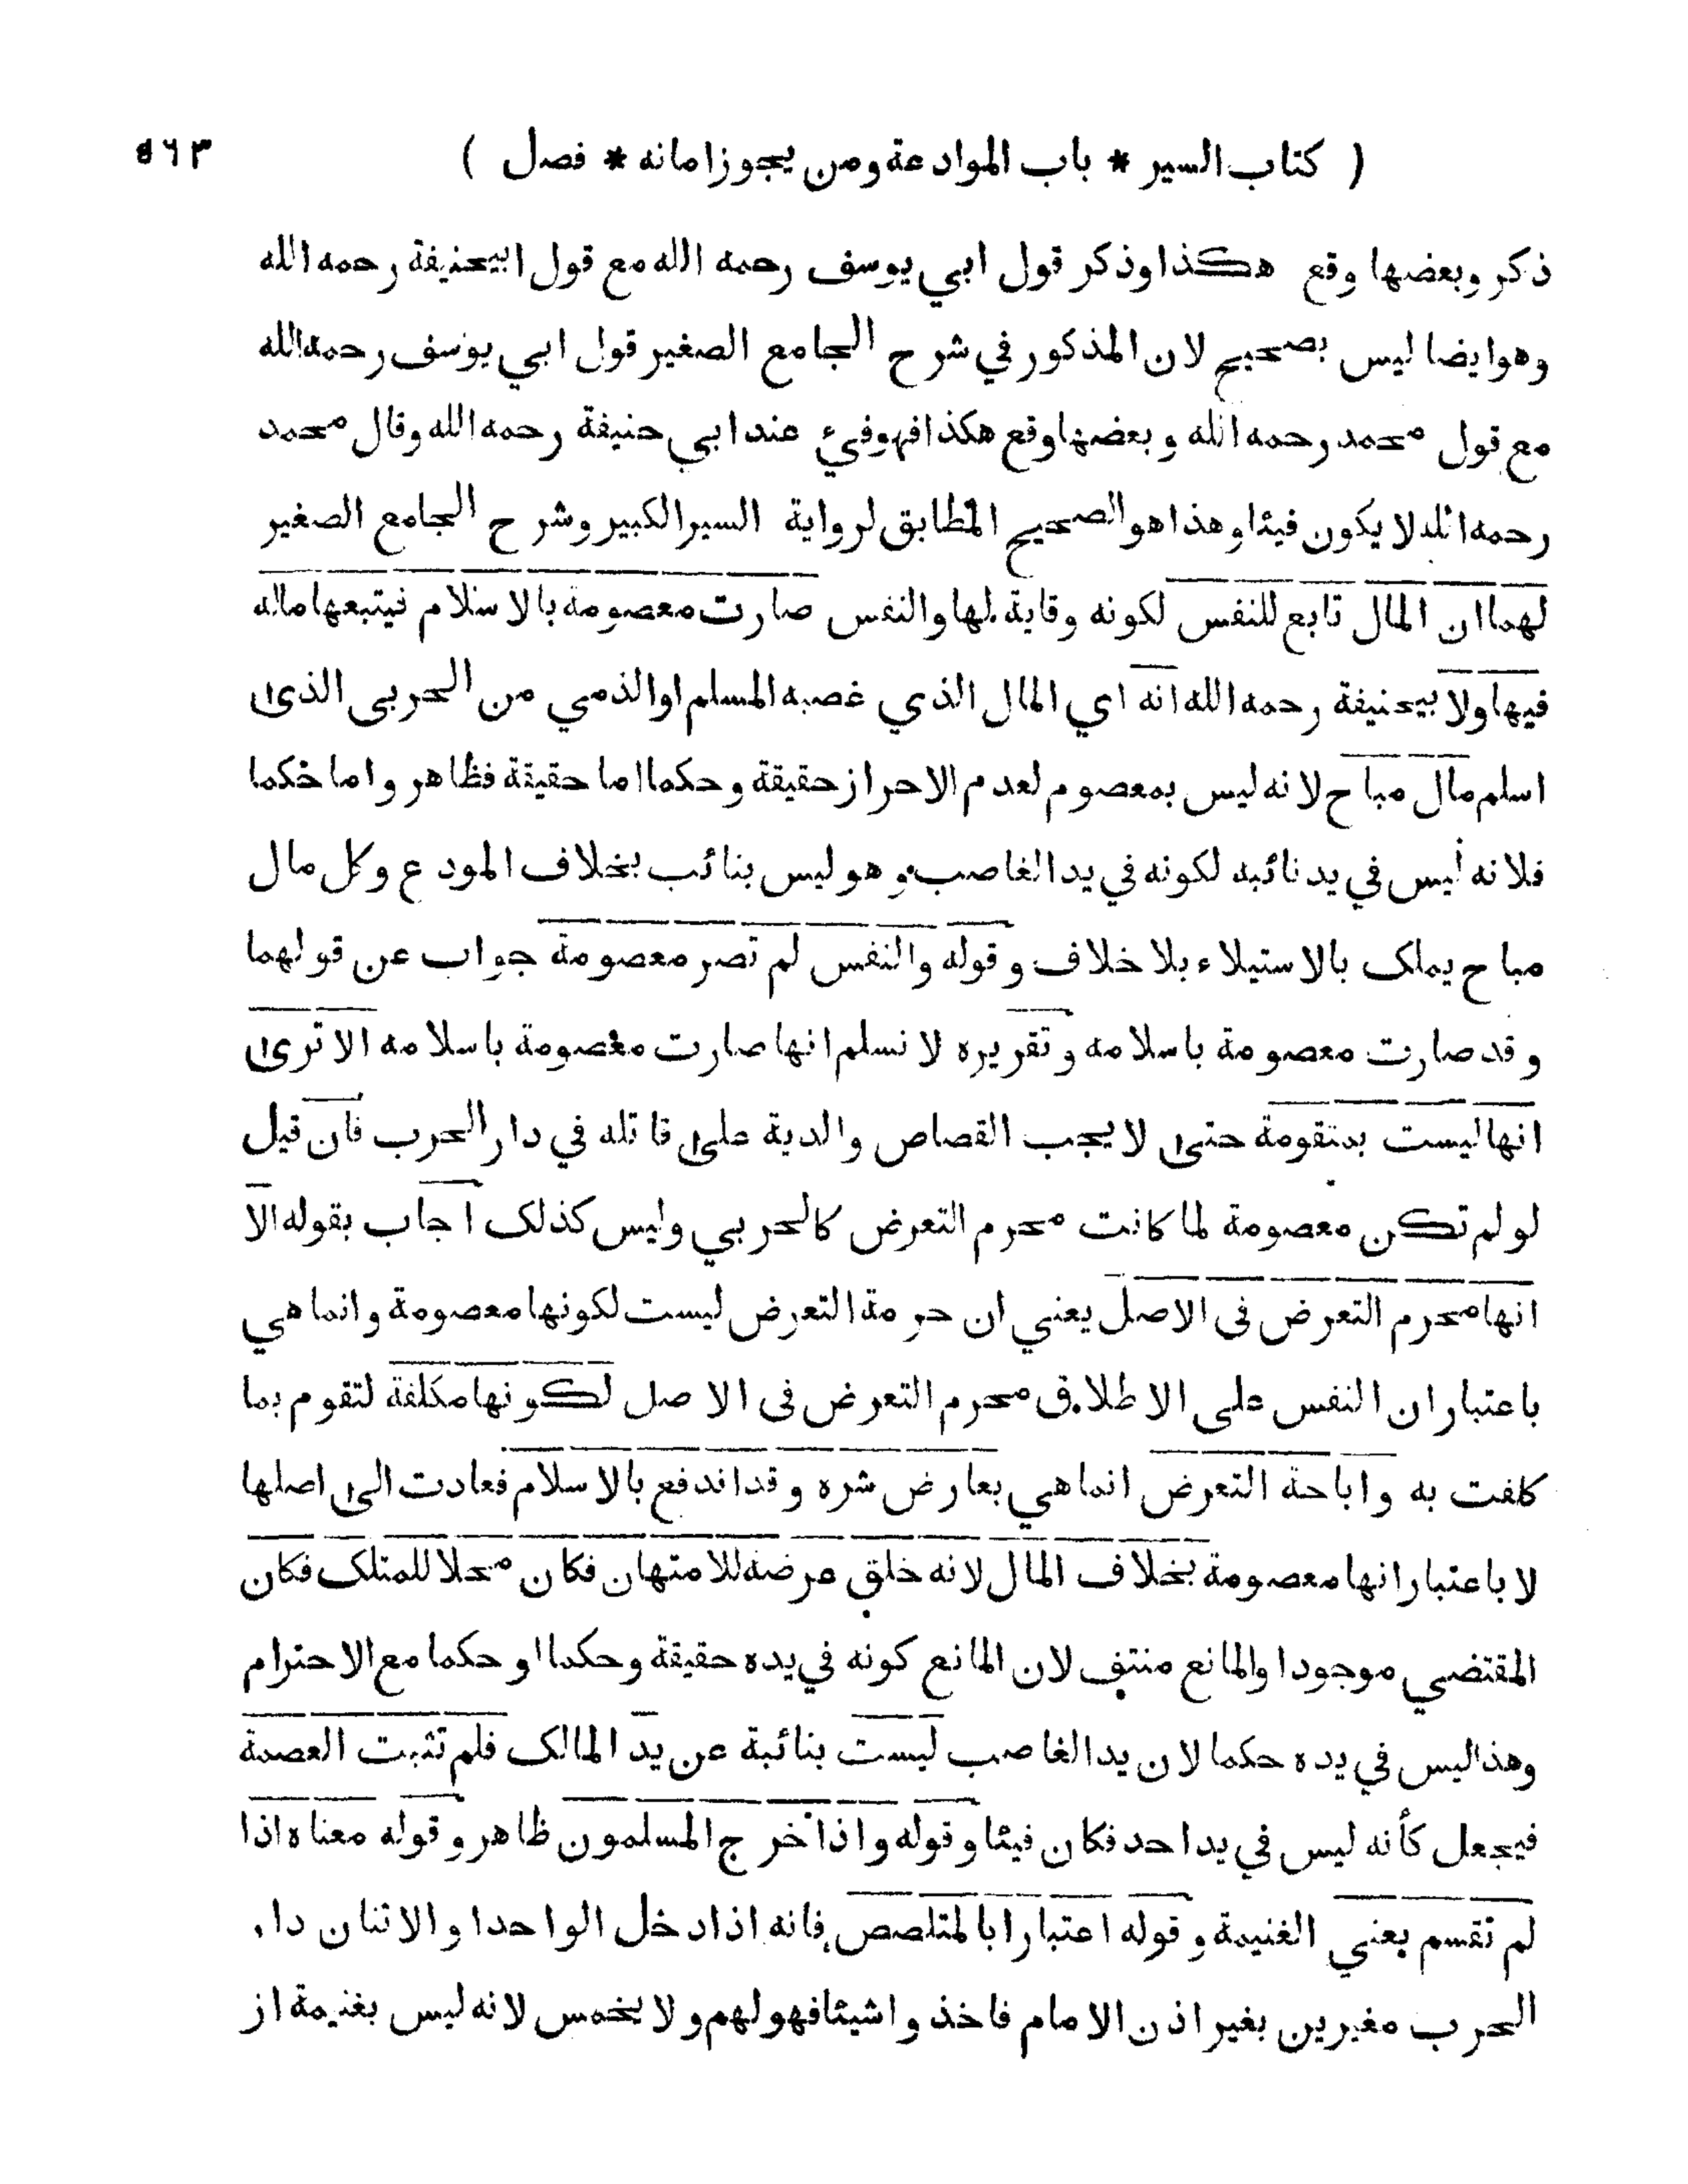 ( كتاب السير * باب الموادعة ومن يجوز امانه * فصل ) ٥٦٣
ذكر وبعضها وقع هكذا وذكر قول ابي يوسف رحمه الله مع قول ابيحنيفة رحمه الله
وهو ايضا ليس بصحيح لان المذكور في شرح الجامع الصغير قول ابي يوسف رحمه الله
مع قول محمد رحمه الله وبعضها وقع هكذا فهو فيء عند ابي حنيفة رحمه الله وقال محمد
رحمه الله لا يكون فيئا وهذا هو الصحيح المطابق لرواية السير الكبير وشرح الجامع الصغير
لهما ان المال تابع للنفس لكونه وقاية لها والنفس صارت معصومة بالاسلام فيتبعها ماله
فيها ولابيحنيفة رحمه الله انه اي المال الذي غصبه المسلم او الذمي من الحربى الذى
اسلم مال مباح لانه ليس بمعصوم لعدم الاحراز حقيقة وحكما اما حقيقة فظاهر واما حكما
فلانه ليس في يد نائبه لكونه في يد الغاصب وهو ليس بنائب بخلاف المودع وكل مال
مباح يملك بالاستيلاء بلا خلاف وقوله والنفس لم تصر معصومة جواب عن قولهما
وقد صارت معصومة باسلامه وتقريره لا نسلم انها صارت معصومة باسلامه الا ترى
انها ليست بمتقومة حتى لا يجب القصاص والدية على قاتله في دار الحرب فان قيل
لو لم تكن معصومة لما كانت محرم التعرض كالحربي وليس كذلك اجاب بقوله الا
انها محرم التعرض فى الاصل يعني ان حرمة التعرض ليست لكونها معصومة وانما هي
باعتبار ان النفس على الاطلاق محرم التعرض فى الاصل لكونها مكلفة لتقوم بما
كلفت به واباحة التعرض انما هي بعارض شره وقد اندفع بالاسلام فعادت الى اصلها
لا باعتبار انها معصومة بخلاف المال لانه خلق عرضة للامتهان فكان محلا للمتلك فكان
المقتضي موجودا والمانع منتف لان المانع كونه في يده حقيقة وحكما او حكما مع الاحترام
وهذا ليس في يده حكما لان يد الغاصب ليست بنائبة عن يد المالك فلم تثبت العصمة
فيجعل كأنه ليس في يد احد فكان فيئا وقوله واذا خرج المسلمون ظاهر وقوله معناه اذا
لم تقسم يعني الغنيمة وقوله اعتبارا بالمتلصص فانه اذا دخل الواحد او الاثنان دار
الحرب مغيرين بغير اذن الامام فاخذوا شيئا فهو لهم ولا يخمس لانه ليس بغنيمة از